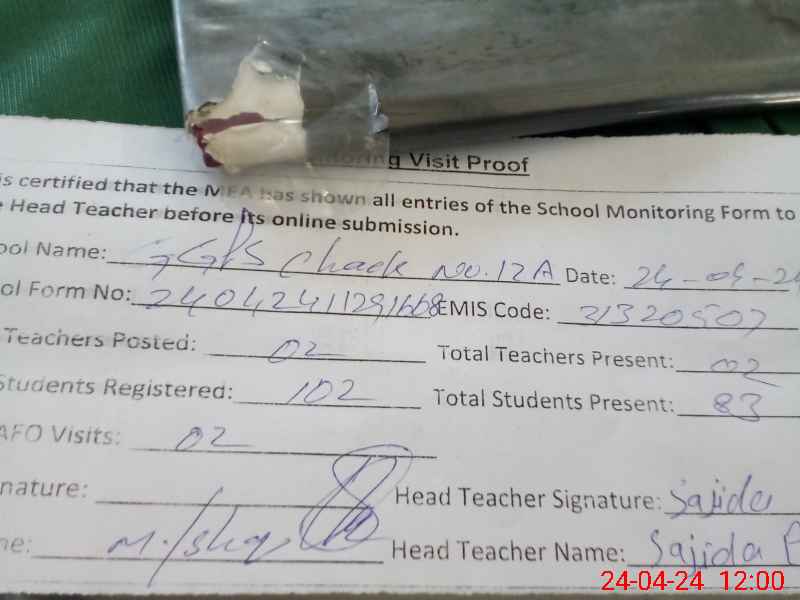 oring Visit Proof
is certified that the MEA has shown all entries of the School Monitoring Form to
e Head Teacher before its online submission.
ool Name: GGPS Chack No. 12A Date: 24-04-24
ol Form No: EMIS Code: 31320507
Teachers Posted: 02 Total Teachers Present: 02
Students Registered: 102 Total Students Present: 83
AFO Visits: 02
nature: Head Teacher Signature: Sajida
me: Head Teacher Name: Sajida
24-04-24 12:00